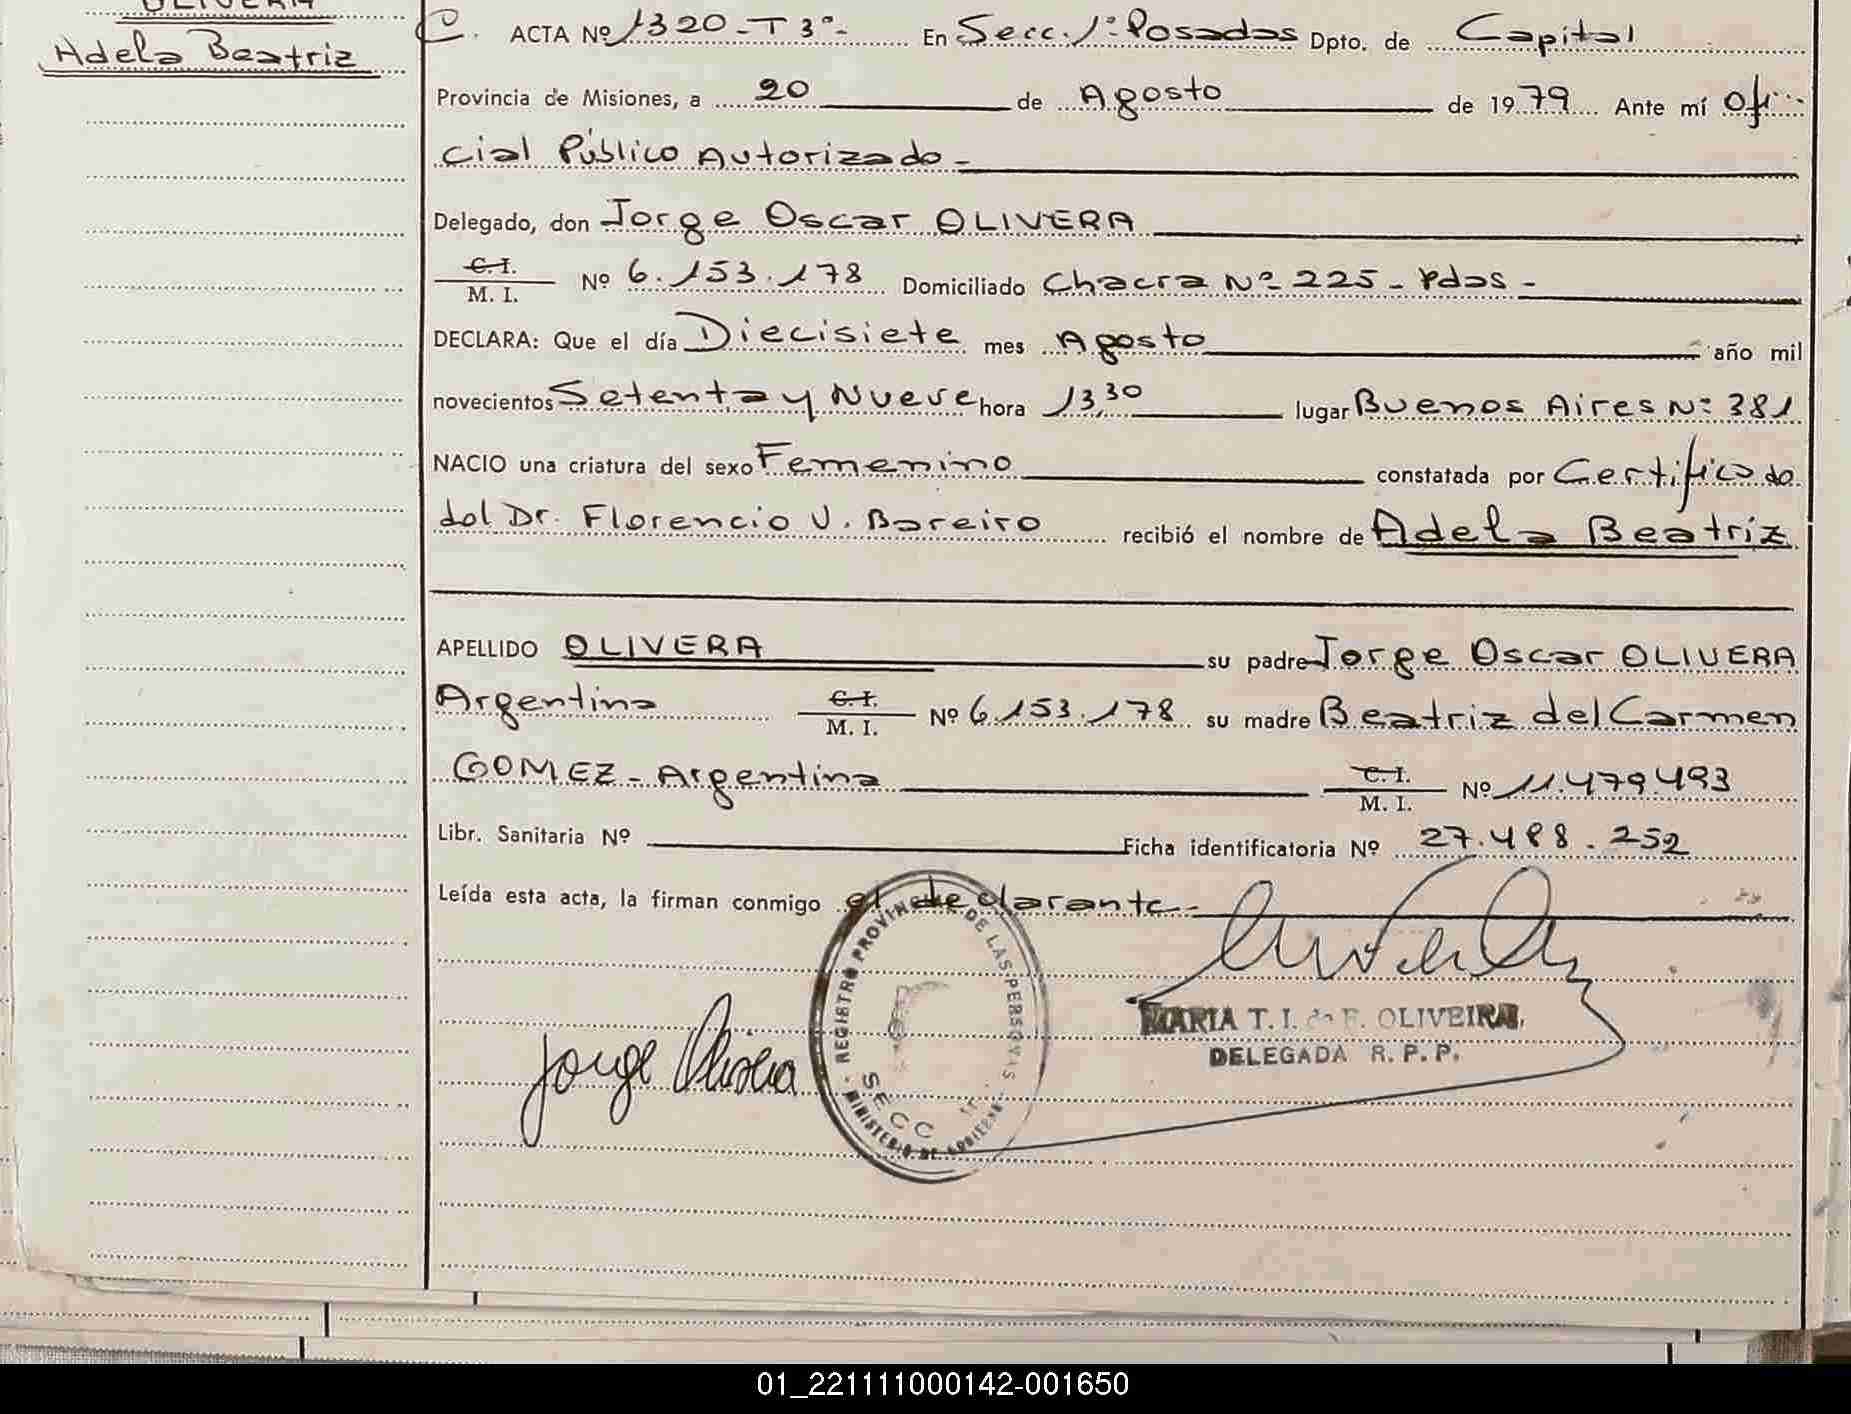 OLIVERA
Adela Beatriz
C. ACTA Nº 1320-T3º- En Secc. 1ª Posadas Dpto. de Capital
Provincia de Misiones, a 20 de Agosto de 1979 Ante mí Ofi-
cial Público Autorizado-
Delegado, don Jorge Oscar OLIVERA
C.I. / M. I. Nº 6.153.178 Domiciliado Chacra Nº 225- Pdas-
DECLARA: Que el día Diecisiete mes Agosto año mil
novecientos Setenta y Nueve hora 13,30 lugar Buenos Aires Nº 381
NACIO una criatura del sexo Femenino constatada por Certificado
del Dr. Florencio V. Bareiro recibió el nombre de Adela Beatriz
APELLIDO OLIVERA su padre Jorge Oscar OLIVERA
Argentino C.I. / M. I. Nº 6.153.178 su madre Beatriz del Carmen
GOMEZ- Argentina C.I. / M. I. Nº 11.479.493
Libr. Sanitaria Nº Ficha identificatoria Nº 27.488.252
Leída esta acta, la firman conmigo el declarante-
REGISTRO PROVINCIAL DE LAS PERSONAS
SECC
MINISTERIO DE GOBIERNO
Jorge Olivera
MARIA T. I. de F. OLIVEIRA,
DELEGADA R. P. P.
01_221111000142-001650